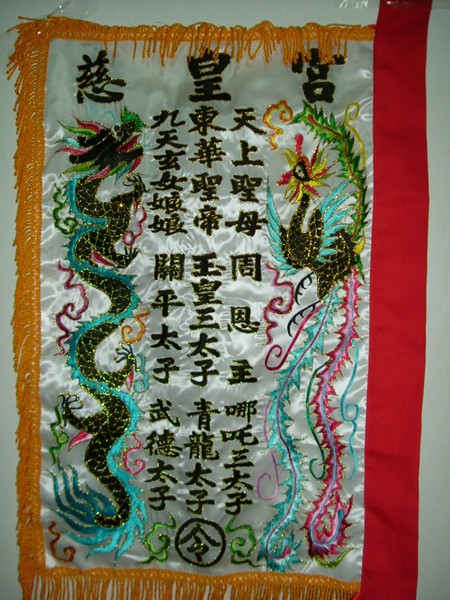 慈皇宮
天上聖母 周恩主 哪吒三太子
東華聖帝 玉皇三太子 青龍太子
九天玄女娘娘 關平太子 武德太子
令